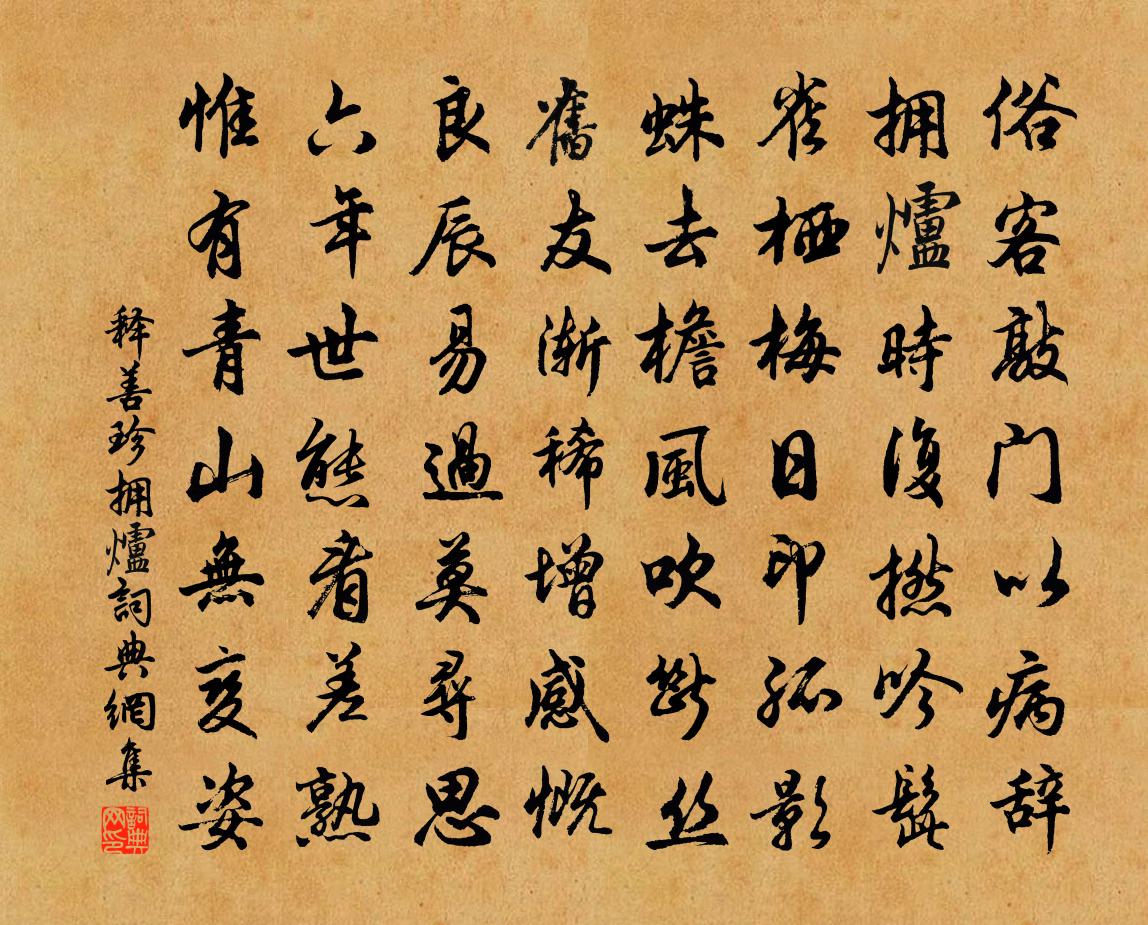 俗客敲门以病辞
拥爐時復撚吟髭
雀栖梅日印孤影
蛛去檐風吹斷丝
舊友漸稀增感慨
良辰易過莫尋思
六年世態看差熟
惟有青山無变姿
释善珍拥爐詞典網集
詞典网印